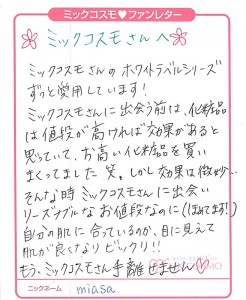 ミックコスモ♥ファンレター
ミックコスモさんへ
ミックコスモさんのホワイトラベルシリーズ
ずっと愛用しています!
ミックコスモさんに出会う前は、化粧品
は値段が高ければ効果があると
思っていて、お高い化粧品を買い
まくってました 笑。しかし効果は微妙…
そんな時 ミックコスモさんに出会い
リーズナブルなお値段なのに(ほめてます!)
自分の肌に合っているのか、目に見えて
肌が良くなりビックリ!!
もう、ミックコスモさん手離せません♡
ニックネーム miasa